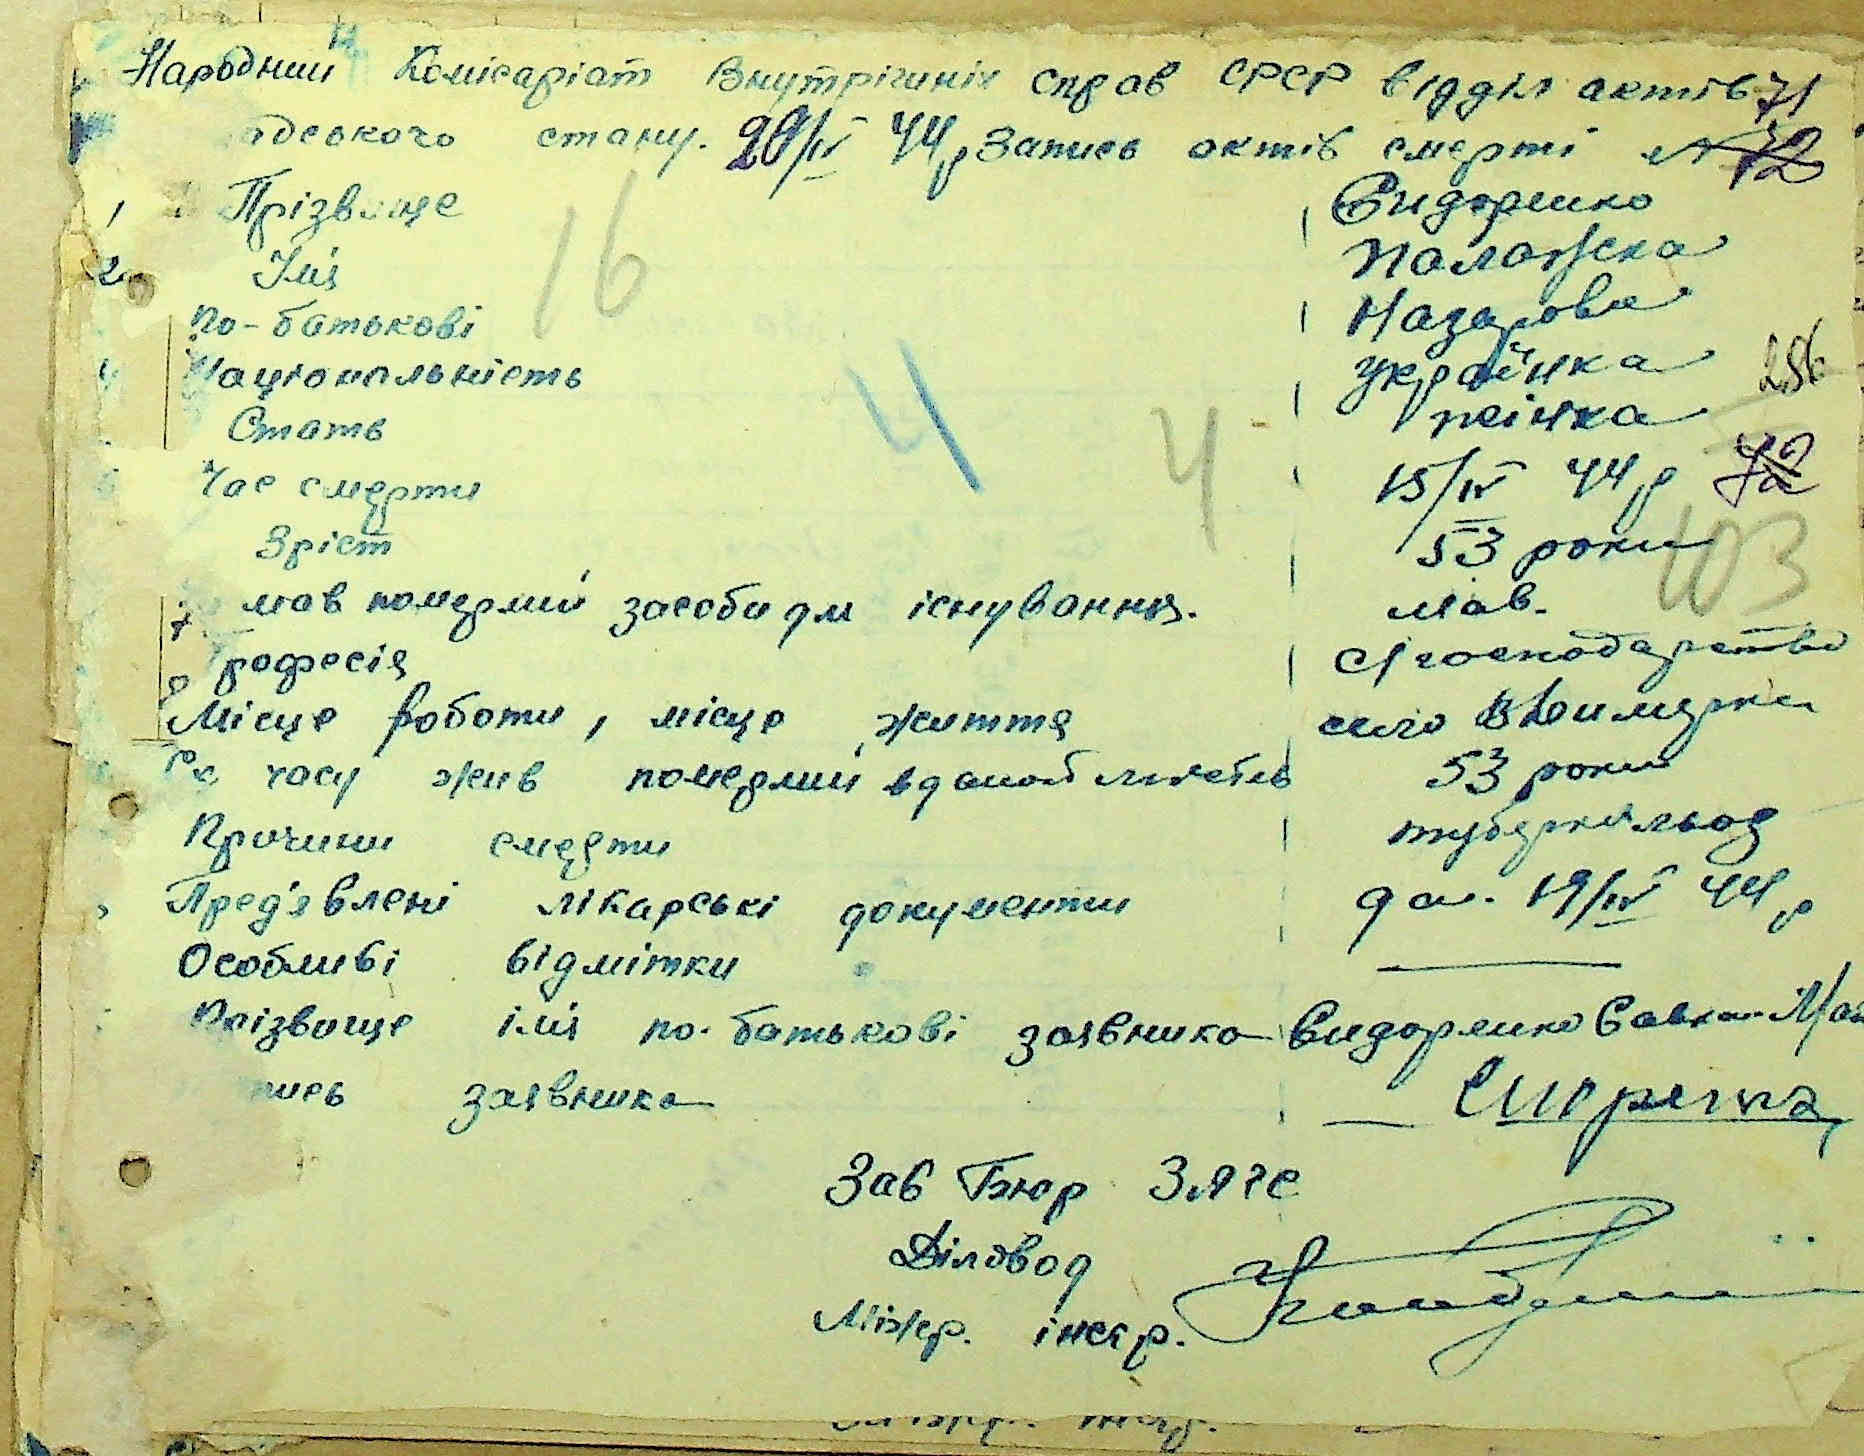 Народний Комісаріат Внутрішніх справ СРСР відділ актів 71
адського стану. 20/IV 44 р Запись октів смерті № 72
1 Прізвище Сидоренко
2 Імя Палажка
По-батькові Назарова
4 Національність українка 286
Стать жінка
Час смерти 15/IV 44 р 72
Зріст 53 роки 103
7 мав померлий засоби дл існування. мав.
8 рофесія С/господарство
Місце роботи, місце життя село
часу жив померлий в даной 53 роки
Причини смерти туберкульоз
Пред'явлені лікарські документи 19/IV 44 р
Особливі відмітки —
Прізвище імя по-батькові заявника Сидоренко
пись заявника
Зав Бюр ЗАГС
Діловод
інспр.
16
4
4